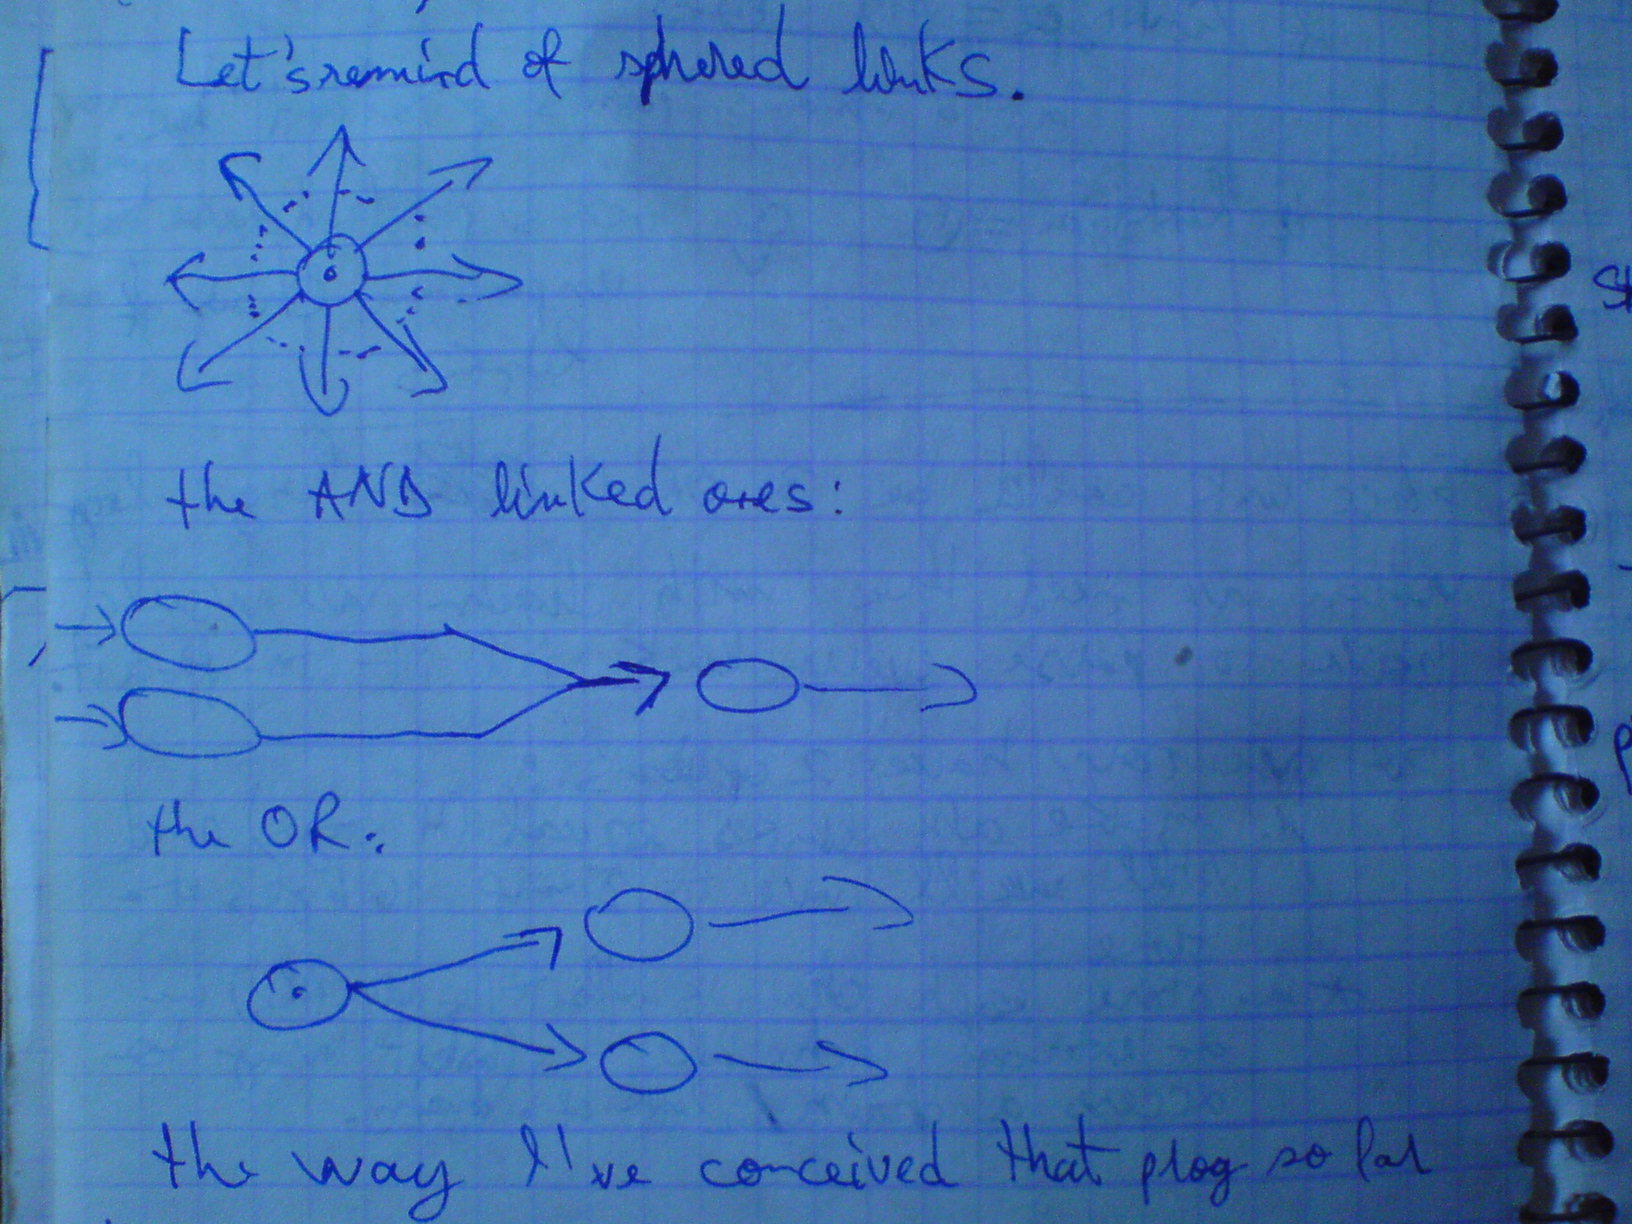 Let's remind of sphered links.
the AND linked ones:
the OR:
the way I've conceived that prog so far